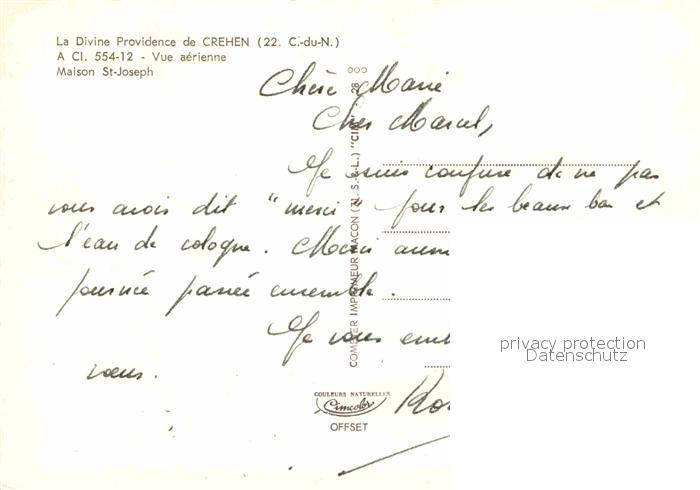 La Divine Providence de CREHEN (22. C.-du-N.)
A Cl. 554-12 - Vue aérienne
Maison St-Joseph
Chère Marie
Cher Marcel,
Je suis confuse de ne pas
vous avois dit "merci" pour les beaux bas et
l'eau de cologne. Merci aussi
journée passée ensemble.
Je vous emb
vœux.
COMBIER IMPRIMEUR MACON (S.-&-L.) "CIM"
COULEURS NATURELLES
Cimcolor
OFFSET
privacy protection
Datenschutz